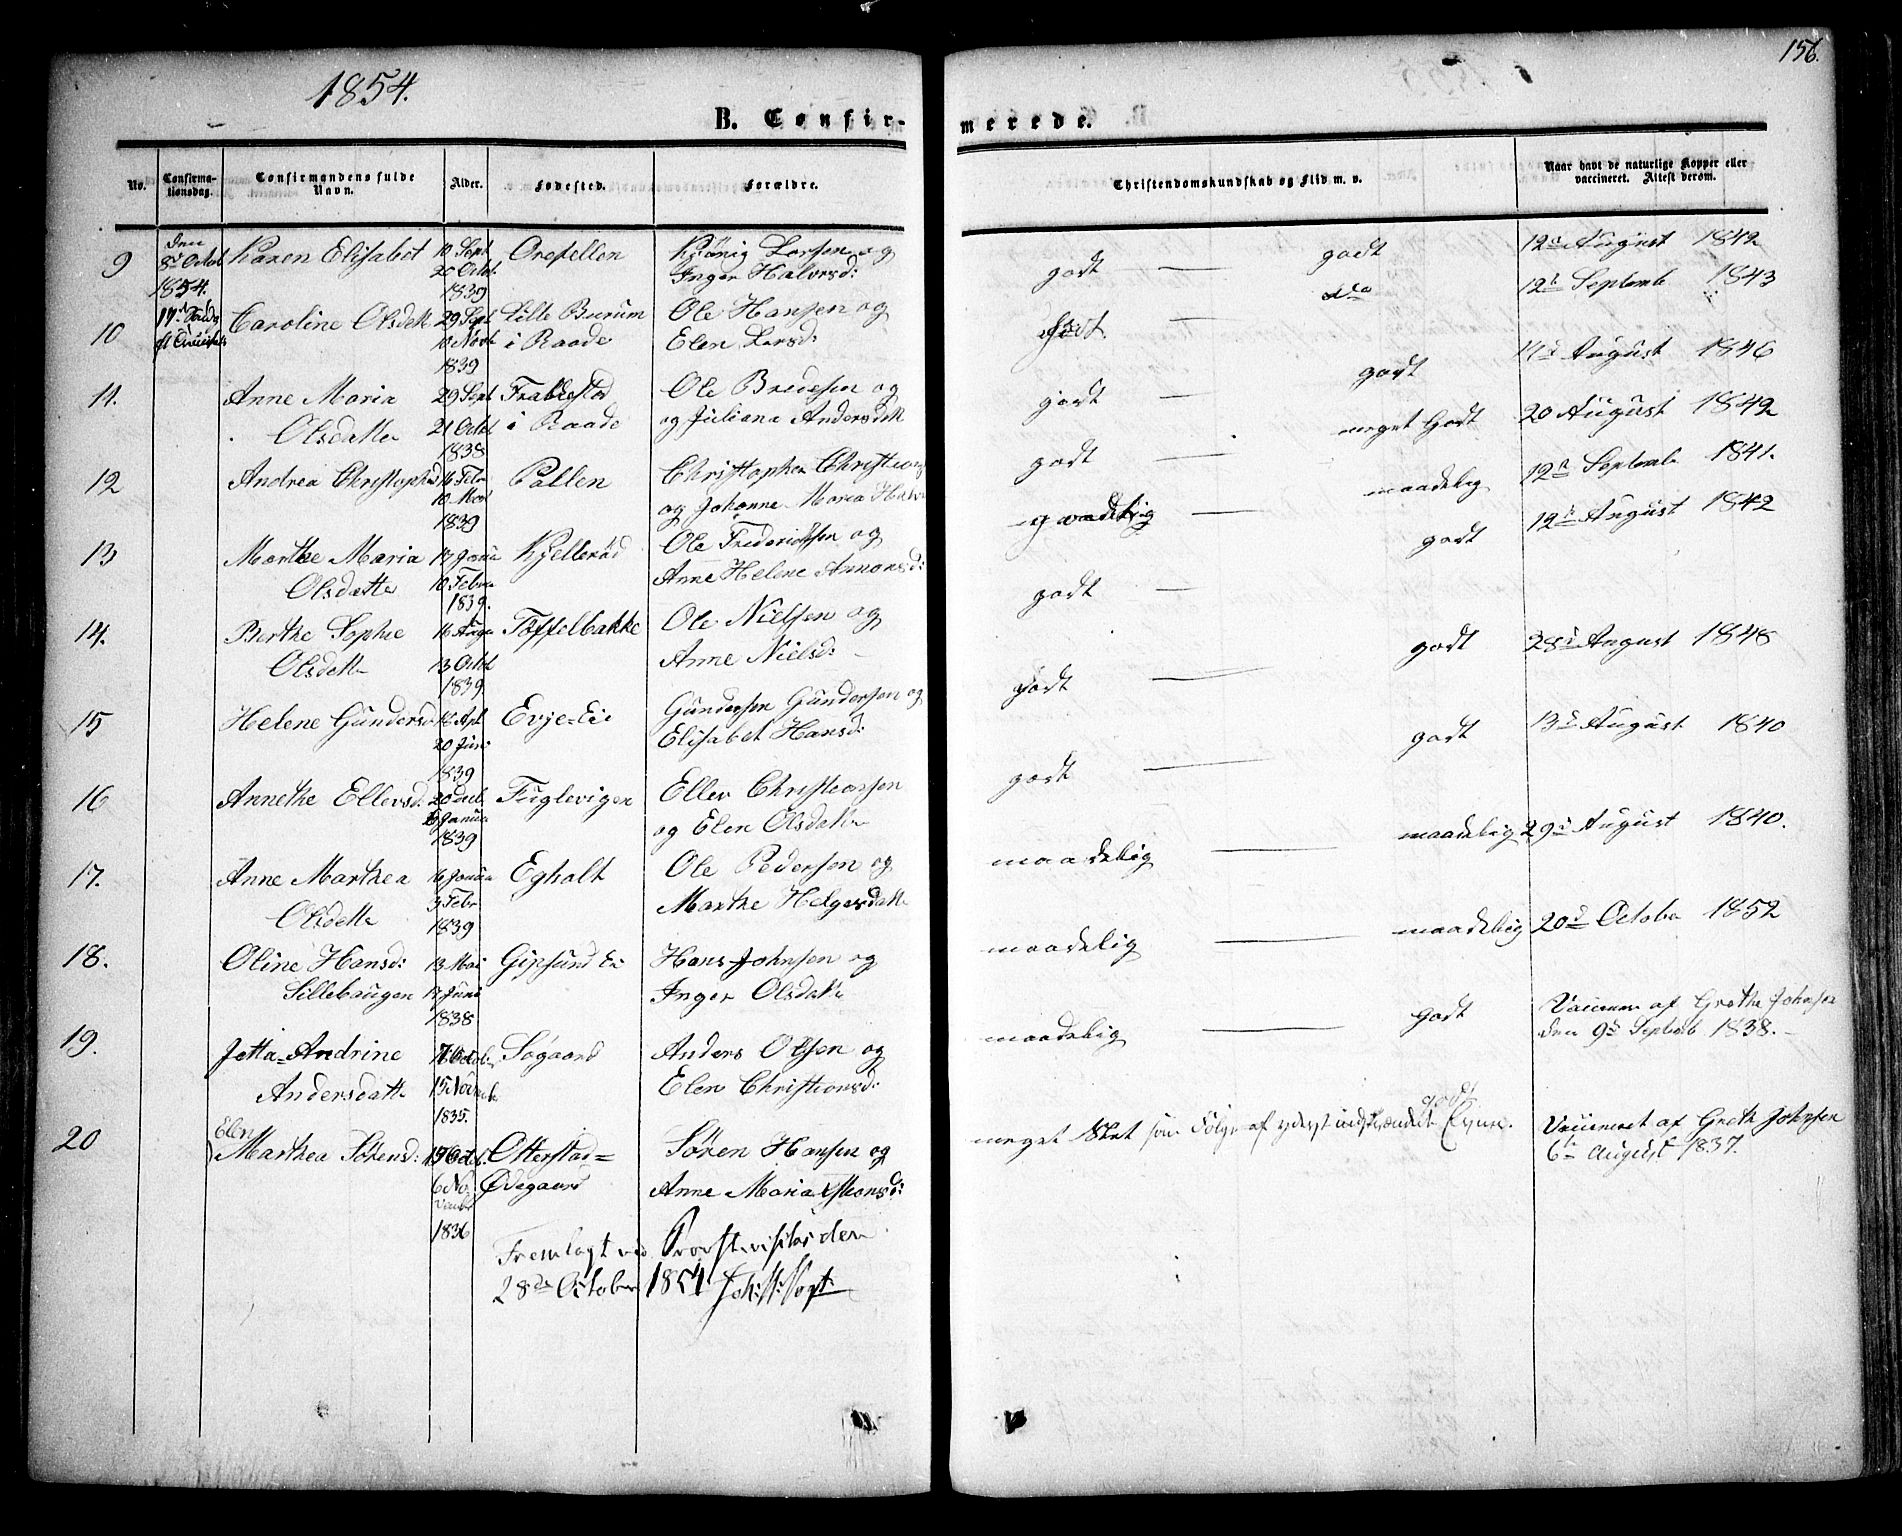 1854.
156.
B. Confirmerede.
No.
Confirma-
tionsdag.
Confirmandens fulde
Navn.
Alder.
Fødested.
Forældre.
Christendomskundskab og Flid m. v.
Naar havt de naturlige Kopper eller
vaccineret. Attest derom.
9
den
8d Octob
1854.
Karen Elisabet
10 Sept
20 Octob
1839
Orefellen
Larsen og
Inger Halvorsd:
godt — godt
12te August 1842
10
Caroline Olsdatt
29 Sept
10 Novb
1839
Lille Burum
i Raade
Ole Hansen og
Elen Larsd:
Godt. — do
12te Septemb 1843
11.
Anne Maria
Olsdatter
29 Sept
21 Octob
1838
Frabbestad
i Raade
Ole Bredesen og
og Juliana Andersdatt
godt — godt
August 1846
12
Andrea Christophsd
16 Febr
10 Mai
1839
Pollen
Christopher Christians
og Johanne Maria Halv
godt — meget Godt
20 August 1842
13
Marthe Maria
Olsdatte
13 Janua
10 Febru
1839.
Kjellerød
Ole Fredericksen og
Anne Helene Annonsd:
maadelig
12te Septemb 1841.
14.
Berthe Sophie
Olsdatte
16 Augu
13 Octob
1839
Tøffelbakke
Ole Nielsen og
Anne Nielsd:
godt — godt
12te August 1842
15
Helene Gundersd:
12 Apl
20 Juni
1839
Evje-Eie
Gundersen Gundersen og
Elisabet Hansd:
godt — godt
28de August 1848
16
Annethe Ellevsd:
20 Decb.
6 Janua
1839
Fuglevigen
Ellev Christiansen
og Elen Olsdatte
godt — godt
13de August 1840
17.
Anne Marthea
Olsdatte
16 Janua
3 Febr
1839
Egholt
Ole Pedersen og
Marthe Helgesdatte
maadelig — maadelig
29de August 1840.
18.
Oline Hansd:
Sillebaugen
13 Mai
17 Juni
1838
Gipsund Ei
Hans Johnsen og
Inger Olsdatte
maadelig — maadelig
20de Octobe 1852
19.
Jetta-Andrine
Andersdatte
Octob
15 Novemb
1835.
Søgaard
Anders Olsen og
Elen Christiansd:
maadelig — godt
Vaccineret af Grethe Johnsen
den 9de Septemb 1838.
20
Elen
Marthea Sørensd:
Octob.
6 No-
vember
1836
Otterstad-
Ødegaard
Søren Hansen og
Anne Maria Hansd:
meget Slet som Følge af yderst indskrænkede Evner. godt
Vaccineret af Greth Johnsen
6te August 1837.
Fremlagt ved Provstevisitas den
28de October 1854